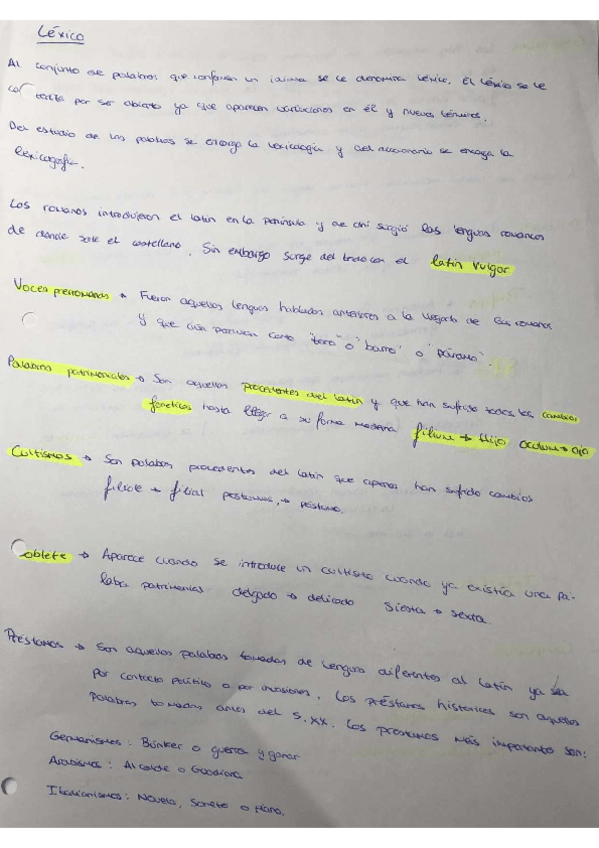 Léxico
Al conjunto de palabras que conforman un idioma se le denomina léxico. El léxico se le
por ser abierto ya que aparecen variaciones en él y nuevos términos.
Del estudio de las palabras se encarga la lexicología y del diccionario se encarga la
lexicografía.
Los romanos introdujeron el latín en la península y de ahí surgió las lenguas romances
de donde sale el castellano. Sin embargo surge del todo con el latín vulgar
Voces prerromanas → Fueron aquellas lenguas habladas anteriores a la llegada de los romanos
y que aún perviven como "toro" o "barro" o "páramo".
Palabras patrimoniales → Son aquellas procedentes del latín y que han sufrido todos los cambios
fonéticos hasta llegar a su forma moderna filium → Hijo oculum → ojo
Cultismos → Son palabras procedentes del latín que apenas han sufrido cambios
filiale → filial postumus → póstumo.
oblete → Aparece cuando se introduce un cultismo cuando ya existía una pa-
labra patrimonial delgado → delicado Siesta → sexta
Préstamos → Son aquellas palabras tomadas de lenguas diferentes al latín ya sea
por contacto político o por invasiones. Los préstamos históricos son aquellas
palabras tomadas antes del S. XX. Los préstamos más importantes son:
Germanismos: Búnker o guerra y ganar
Arabismos: Alcalde o Guadiana
Italianismos: Novela, Soneto o Piano.